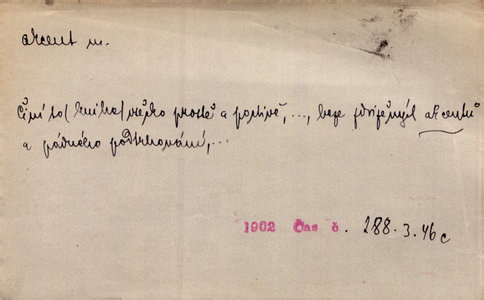 akcent m.
Činí to (kniha) všecko prostě a poctivě, ..., beze zdvižených akcentů
a pádného podtrhování, ...
1902 Čas č. 288. 3. 46c